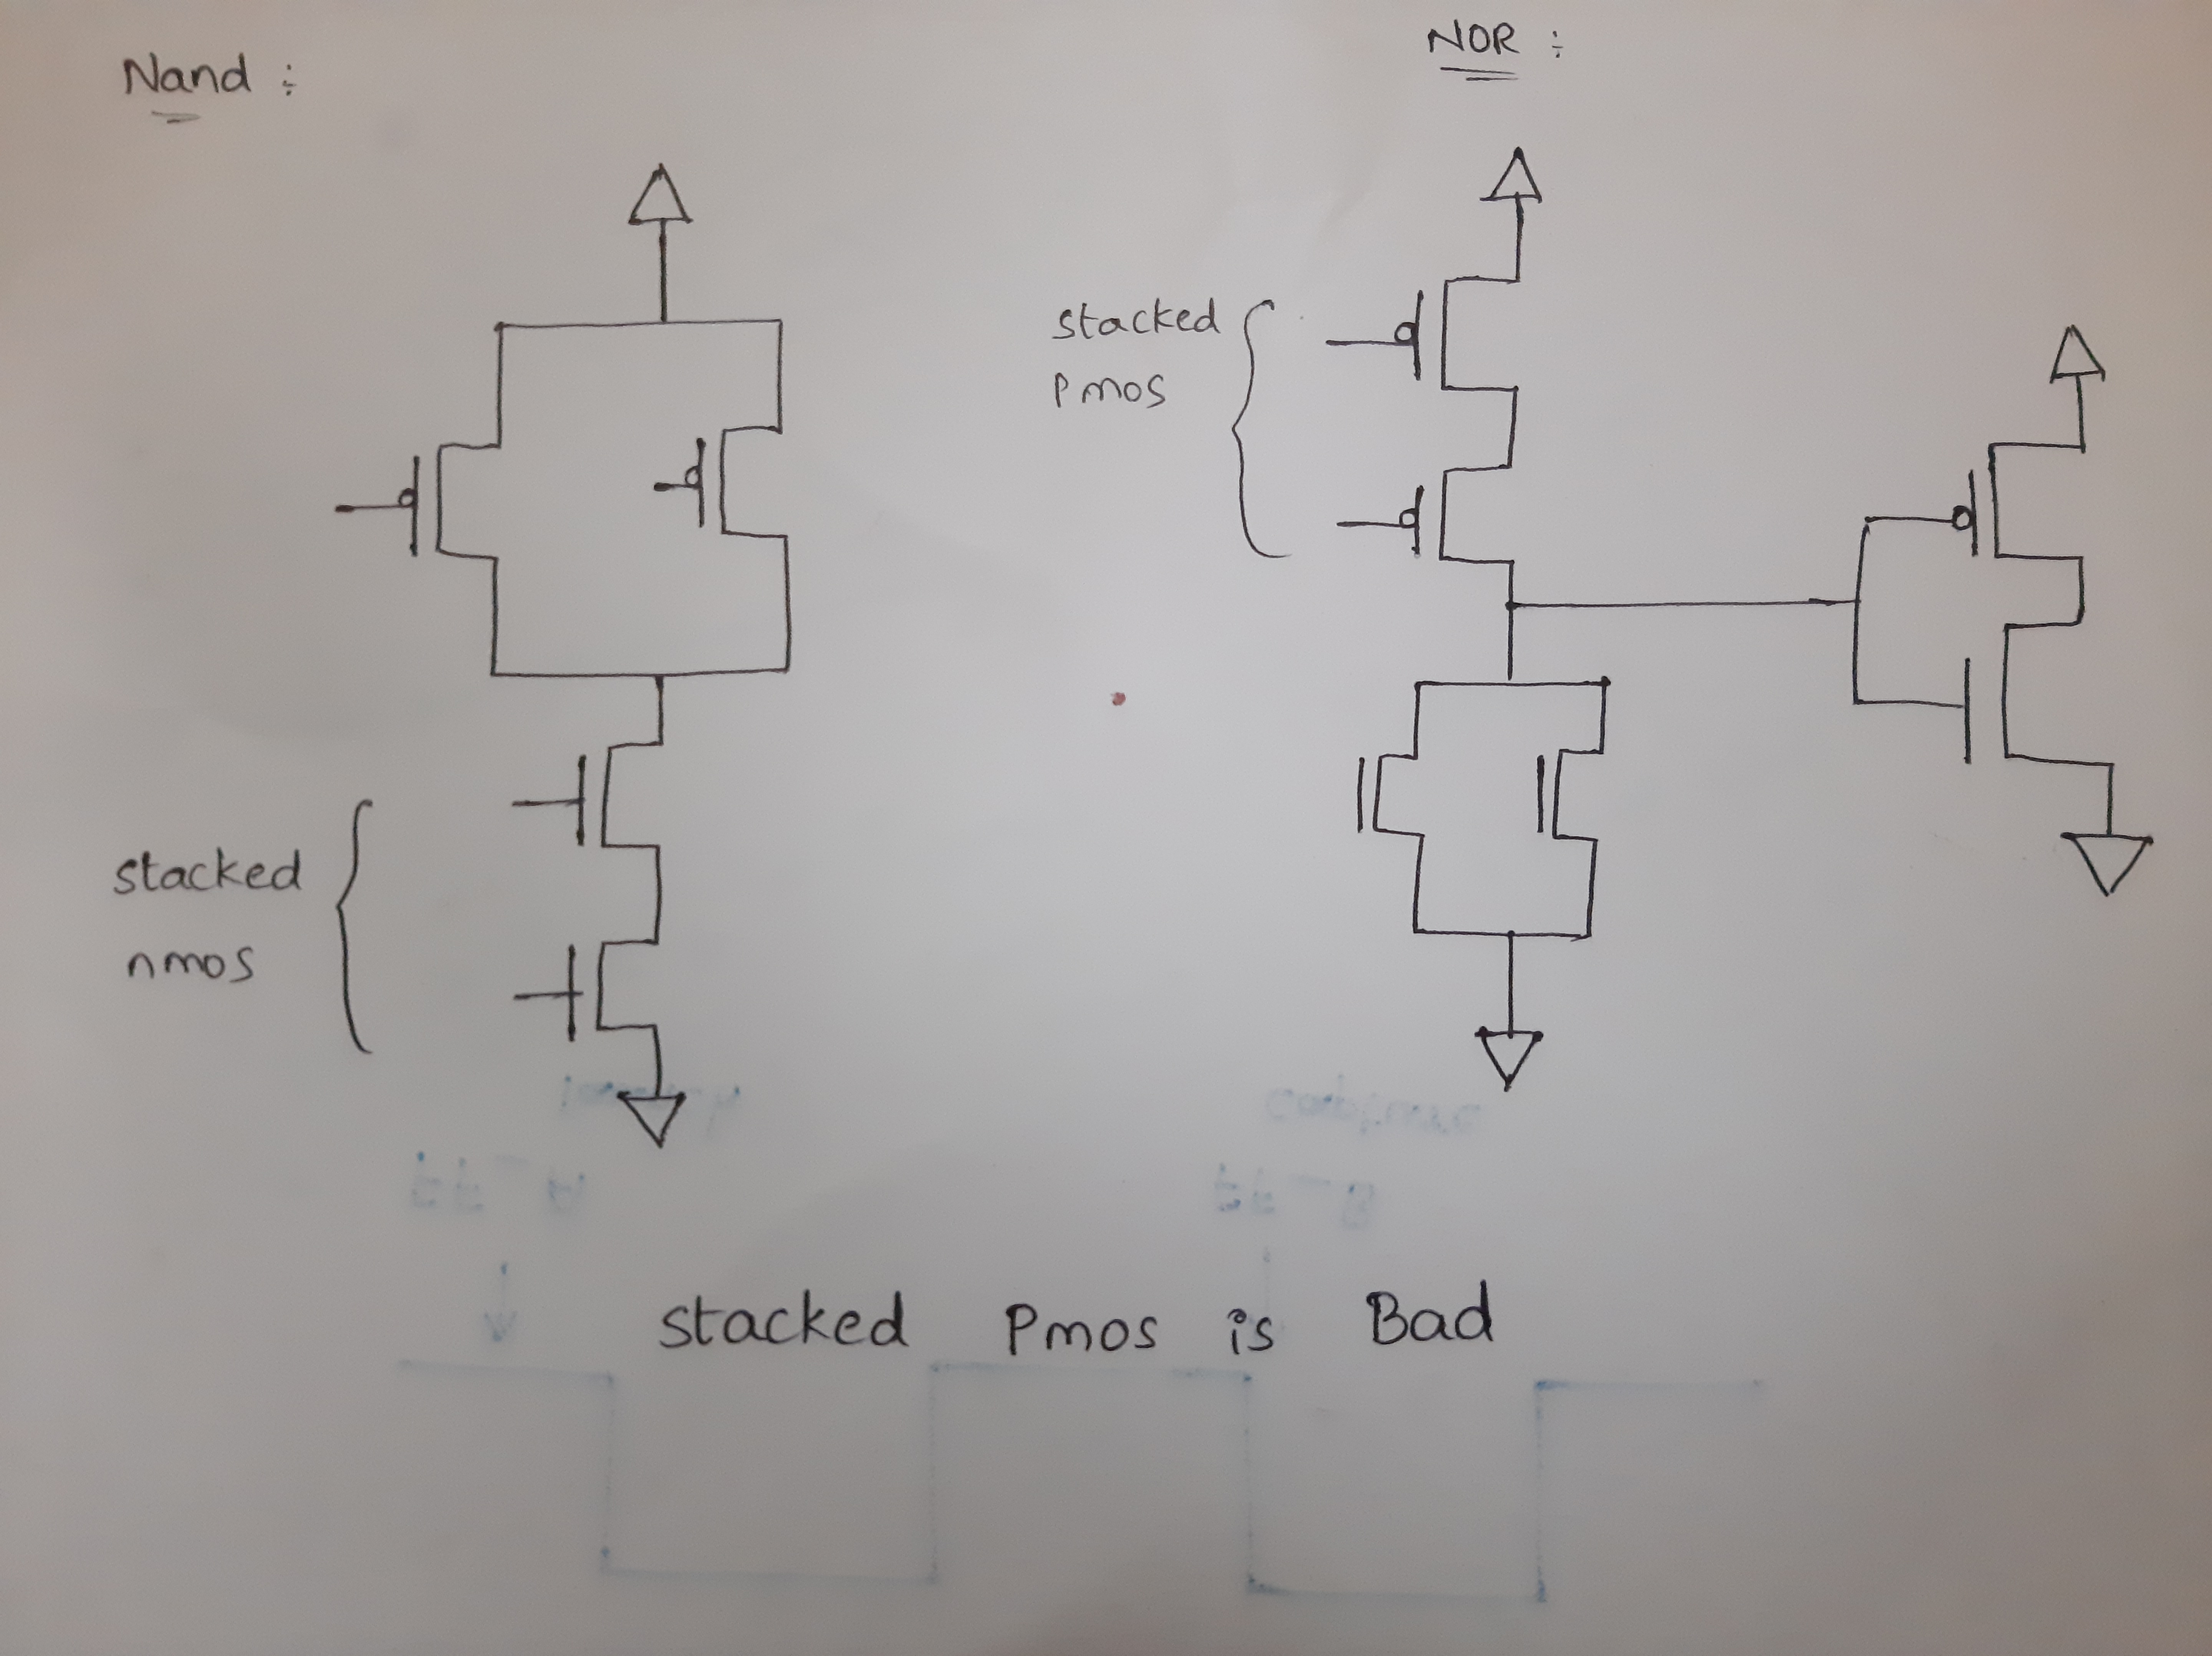 Nand :
NOR :
stacked
Pmos
stacked
nmos
capture
stacked Pmos is Bad